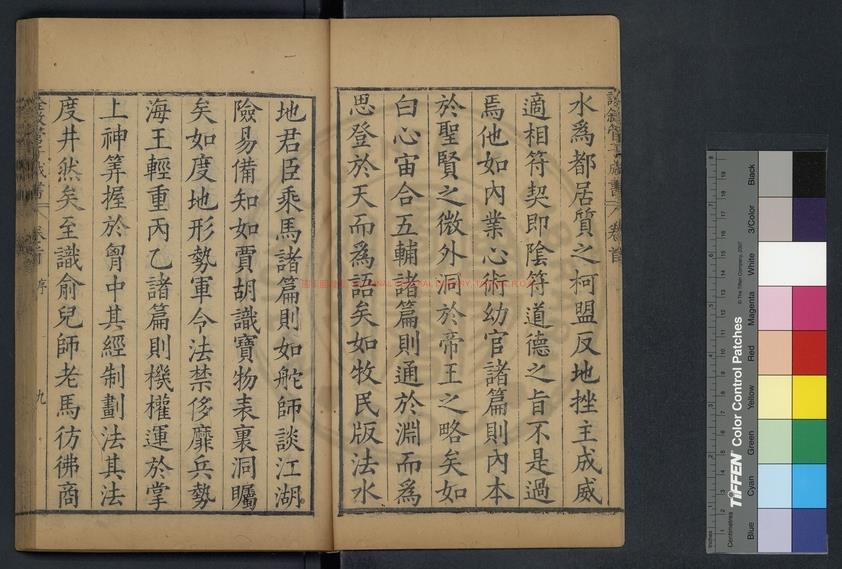 水為都居質之柯盟反地挫主成威
適相符契即陰符道德之旨不是過
焉他如內業心術幼官諸篇則內本
於聖賢之微外洞於帝王之略矣如
白心宙合五輔諸篇則通於淵而為
思登於天而為語矣如牧民版法水
地君臣乘馬諸篇則如舵師談江湖
險易備知如賈胡識寶物表裏洞矚
矣如度地形勢軍令法禁侈靡兵勢
海王輕重丙乙諸篇則機權運於掌
上神筭握於胷中其經制劃法其法
度井然矣至識俞兒師老馬彷彿商
卷首
序
九
TIFFEN Color Control Patches
© The Tiffen Company, 2007
Centimetres
Inches
Blue
Cyan
Green
Yellow
Red
Magenta
White
3/Color
Black